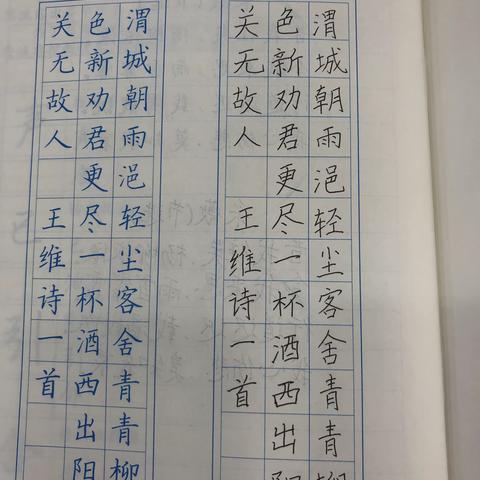 渭城朝雨浥轻尘客舍青青柳
色新劝君更尽一杯酒西出阳
关无故人 王维诗一首
渭城朝雨浥轻尘客舍青青柳
色新劝君更尽一杯酒西出阳
关无故人 王维诗一首